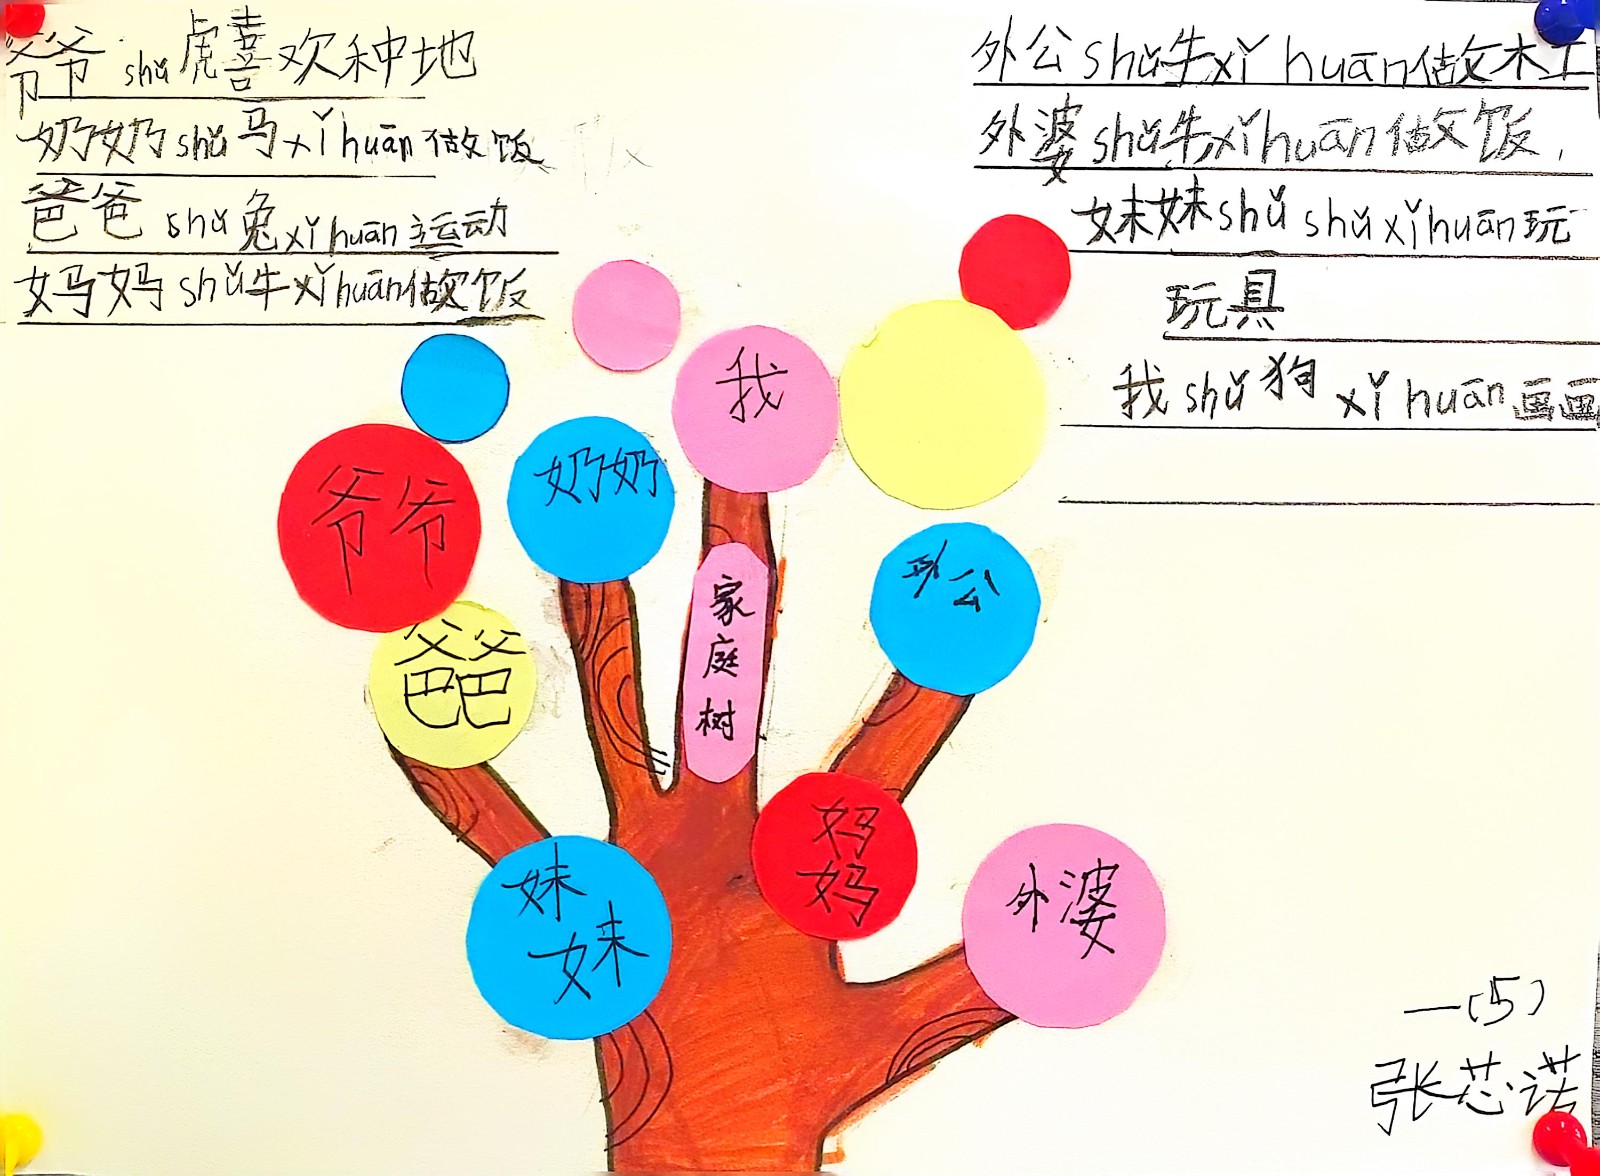 爷爷 shǔ 虎喜欢种地
奶奶 shǔ 马 xǐ huān 做饭
爸爸 shǔ 兔 xǐ huān 运动
妈妈 shǔ 牛 xǐ huān 做饭
外公 shǔ 牛 xǐ huān 做木工
外婆 shǔ 牛 xǐ huān 做饭.
妹妹 shǔ shǔ xǐ huān 玩
玩具
我 shǔ 狗 xǐ huān 画画
我
奶奶
爷爷
外公
家庭树
爸爸
妈
妈
妹
妹
外婆
一(5)
张芯诺